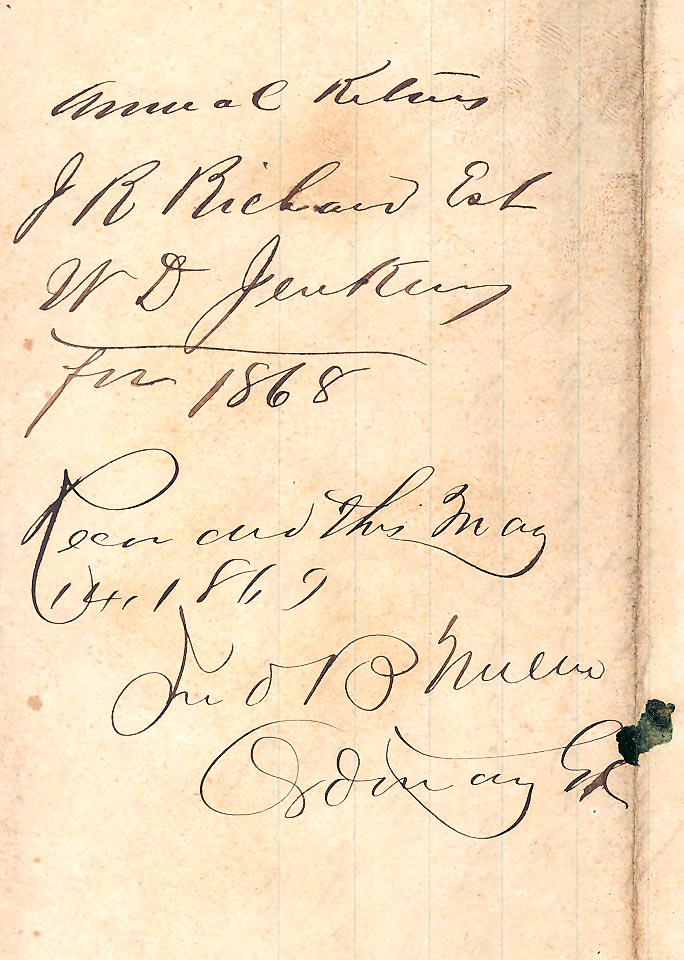 Annual Return
J R Richard Est
W D Jenkins
for 1868
Recorded this May
14, 1869
Jno B
Ordinary